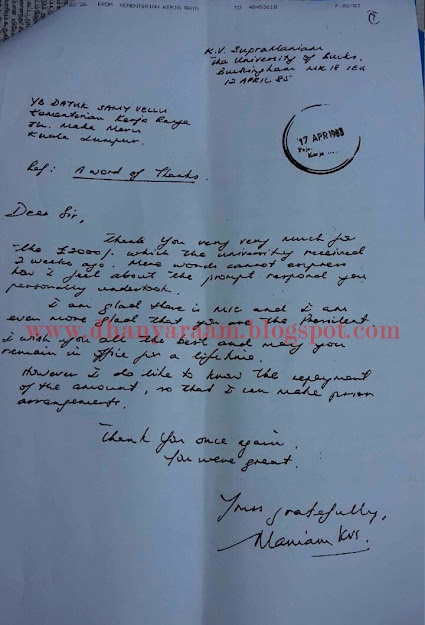 02:26 FROM KEMENTERIAN KERJA RAYA TO 48453618 P.02/03
K.V. Supramaniam
The University of Bucks.
Buckingham MK18 1EG
12 APRIL 85
YB DATUK SAMY VELLU
Kementerian Kerja Raya
Kuala Lumpur.
17 APR 198
Ref: A word of Thanks.
Dear Sir,
Thank you very very much for
the £2000/- which the university received
2 weeks ago. Mere words cannot express
how I feel about the prompt respond you
personally undertook.
I am glad there is MIC and I am
even more glad that you are the President
www.dhanyaraam.blogspot.com
I wish you all the best and may you
remain in office for a lifetime.
However I do like to know the repayment
of the amount, so that I can make prior
arrangements.
Thank you once again.
You were great.
Yours gratefully,
Maniam KVS.